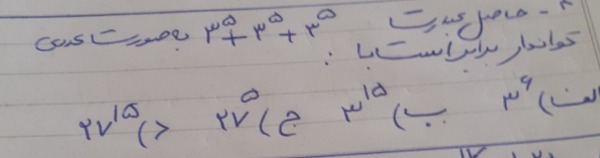 ۲- حاصل عبارت ۳^۵ + ۳^۵ + ۳^۵ به صورت عددی
تواندار برابر است با :
الف) ۳^۶ ب) ۳^۱۵ ج) ۲۷^۵ د) ۲۷^۱۵